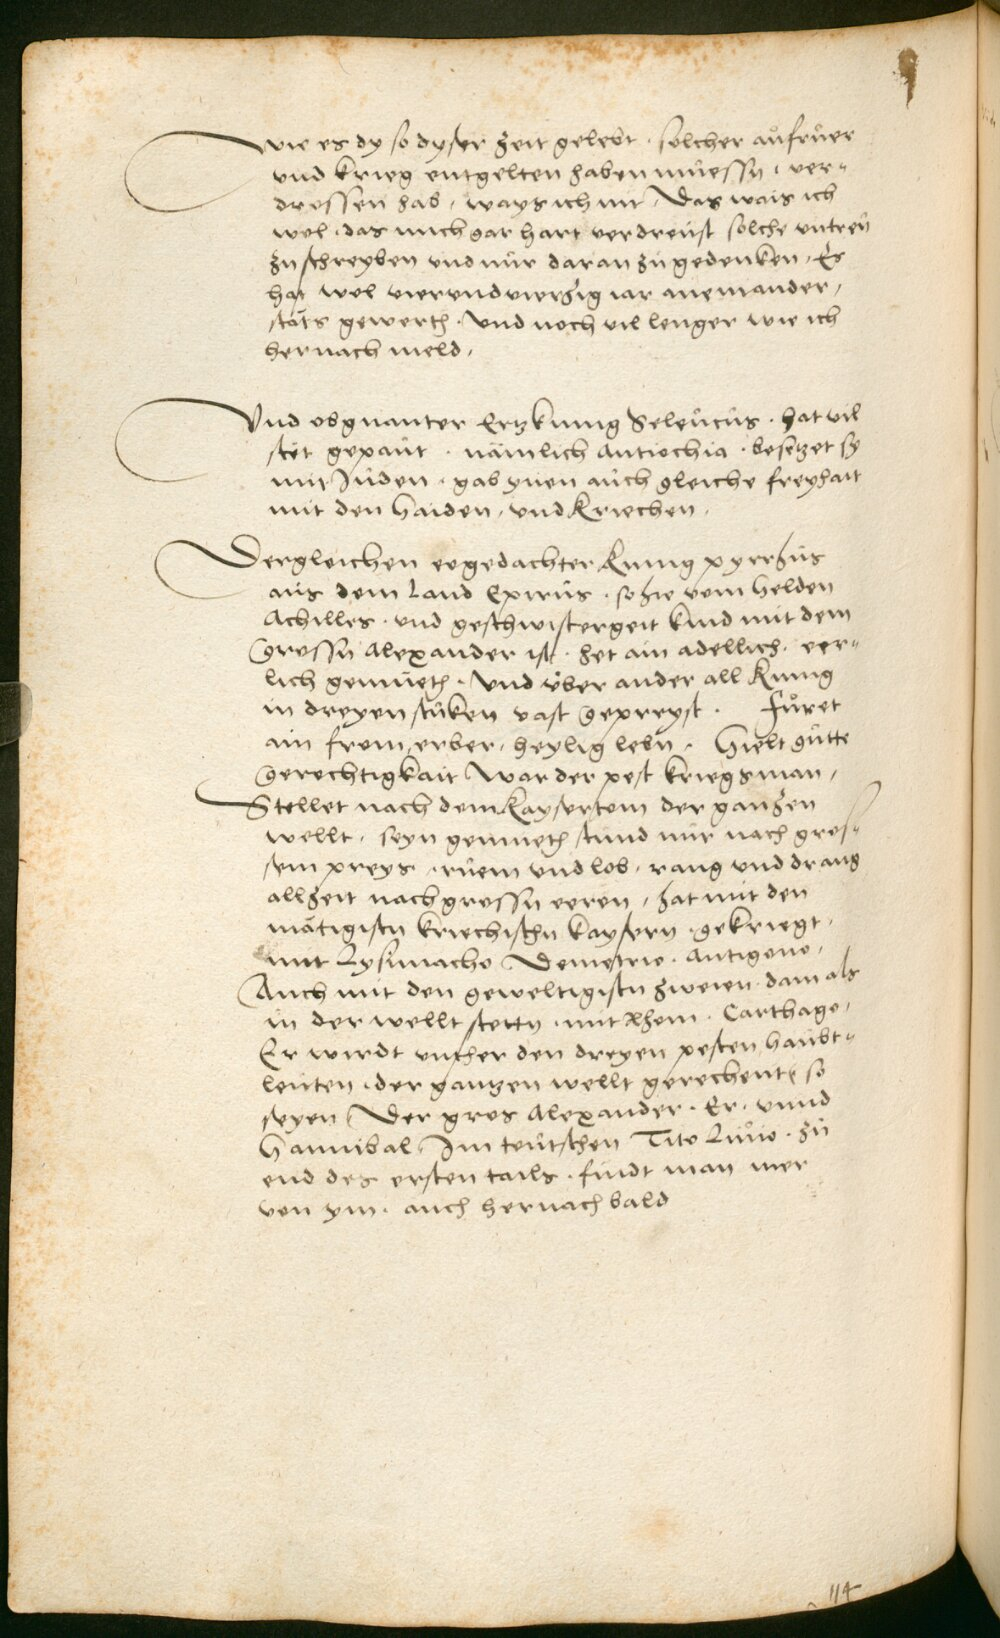 Wie es dy so dyser zeit gelebt · solcher aůfrůer
vnd krieg entgelten haben můessn · ver-
drossen hab, ways ich nit, Das wais ich
wol · das mich gar hart verdreůst solche vntreů
zů schreyben vnd nůr daran zů gedenken, Es
hat wol vierundvierzig iar aneinander,
stäts gewerth · Vnd noch vil lenger wie ich
hernach meld,
Vnd obgnanter Ertzkůnig Seleůcůs · hat vil
stet gepaůt · nämlich Antiochia · besetzet sy
mit Jůden · gab ynen aůch gleiche freyhait
mit den Haiden, vnd Kriechen,
Dergleichen eegedachter Kůnig pyrrhůs
aůs dem Land Epirůs · so hie vom Helden
Achilles · vnd geschwistergeit kind mit dem
Grossn Alexander ist · het ain adellich, eer-
lich gemůeth · Vnd ůber ander all Kůnig
in dreyen stůken vast gepreyst · Fůret
ain from, erber, heylig lebn · Hielt gůtte
gerechtigkait War der pest kriegsman,
Stellet nach dem Kaysertom der ganzen
wellt, seyn gemueth stůnd nůr nach gros-
sem preys · růem vnd lob, rang vnd drang
allzeit nach grossn eeren, hat mit den
mätigistn kriechischn kaysern · gekriegt,
mit Lysimacho Demetrio · Antigono,
Auch mit den geweltigistn zweien damals
in der wellt stettn, mit Rhom · Carthago,
Er wirdt vnther den dreyen pesten haůbt-
leůten · der gantzen wellt gerechent, so
seyen Der gros Alexander · Er · vnnd
Hannibal, Im teůtschen Tito Liůio · zů
end des ersten tails · findt man mer
von ym · auch hernach bald
114